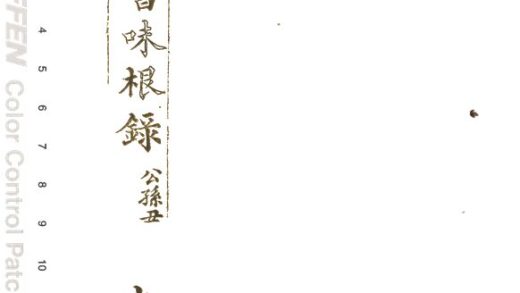 味根錄 公孫丑
FFEN Color Control Patc
4 5 6 7 8 9 10